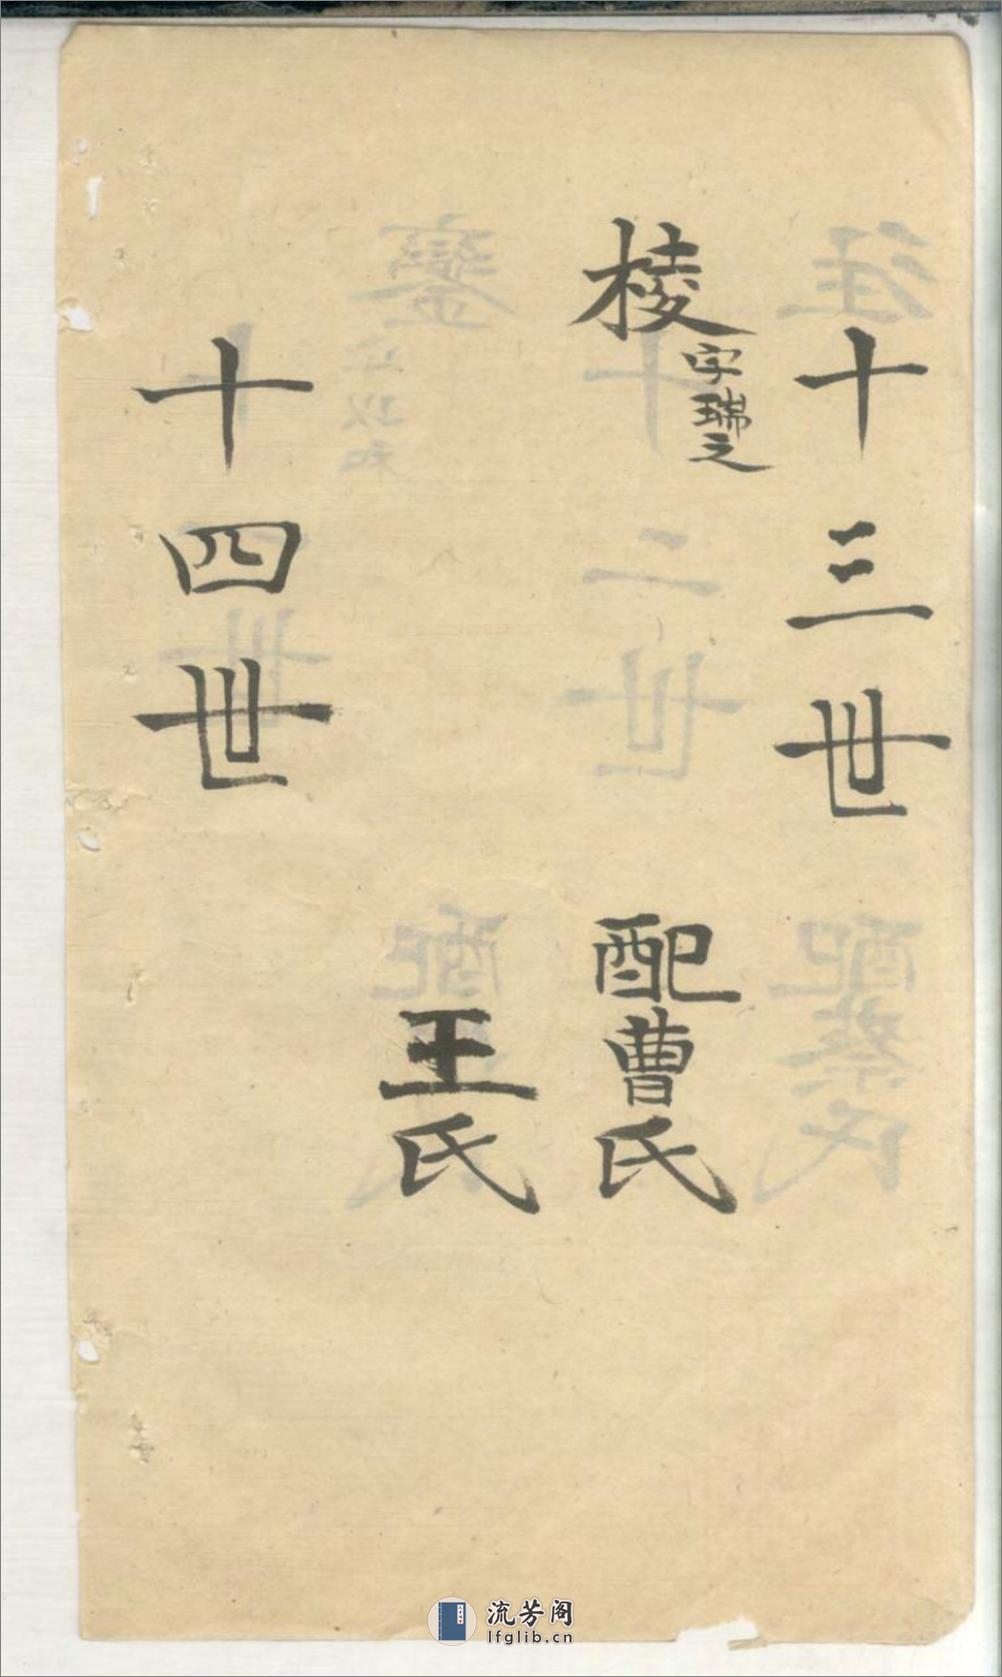 十三世
棱字瑞之
配曹氏
王氏
十四世
流芳阁
lfglib.cn